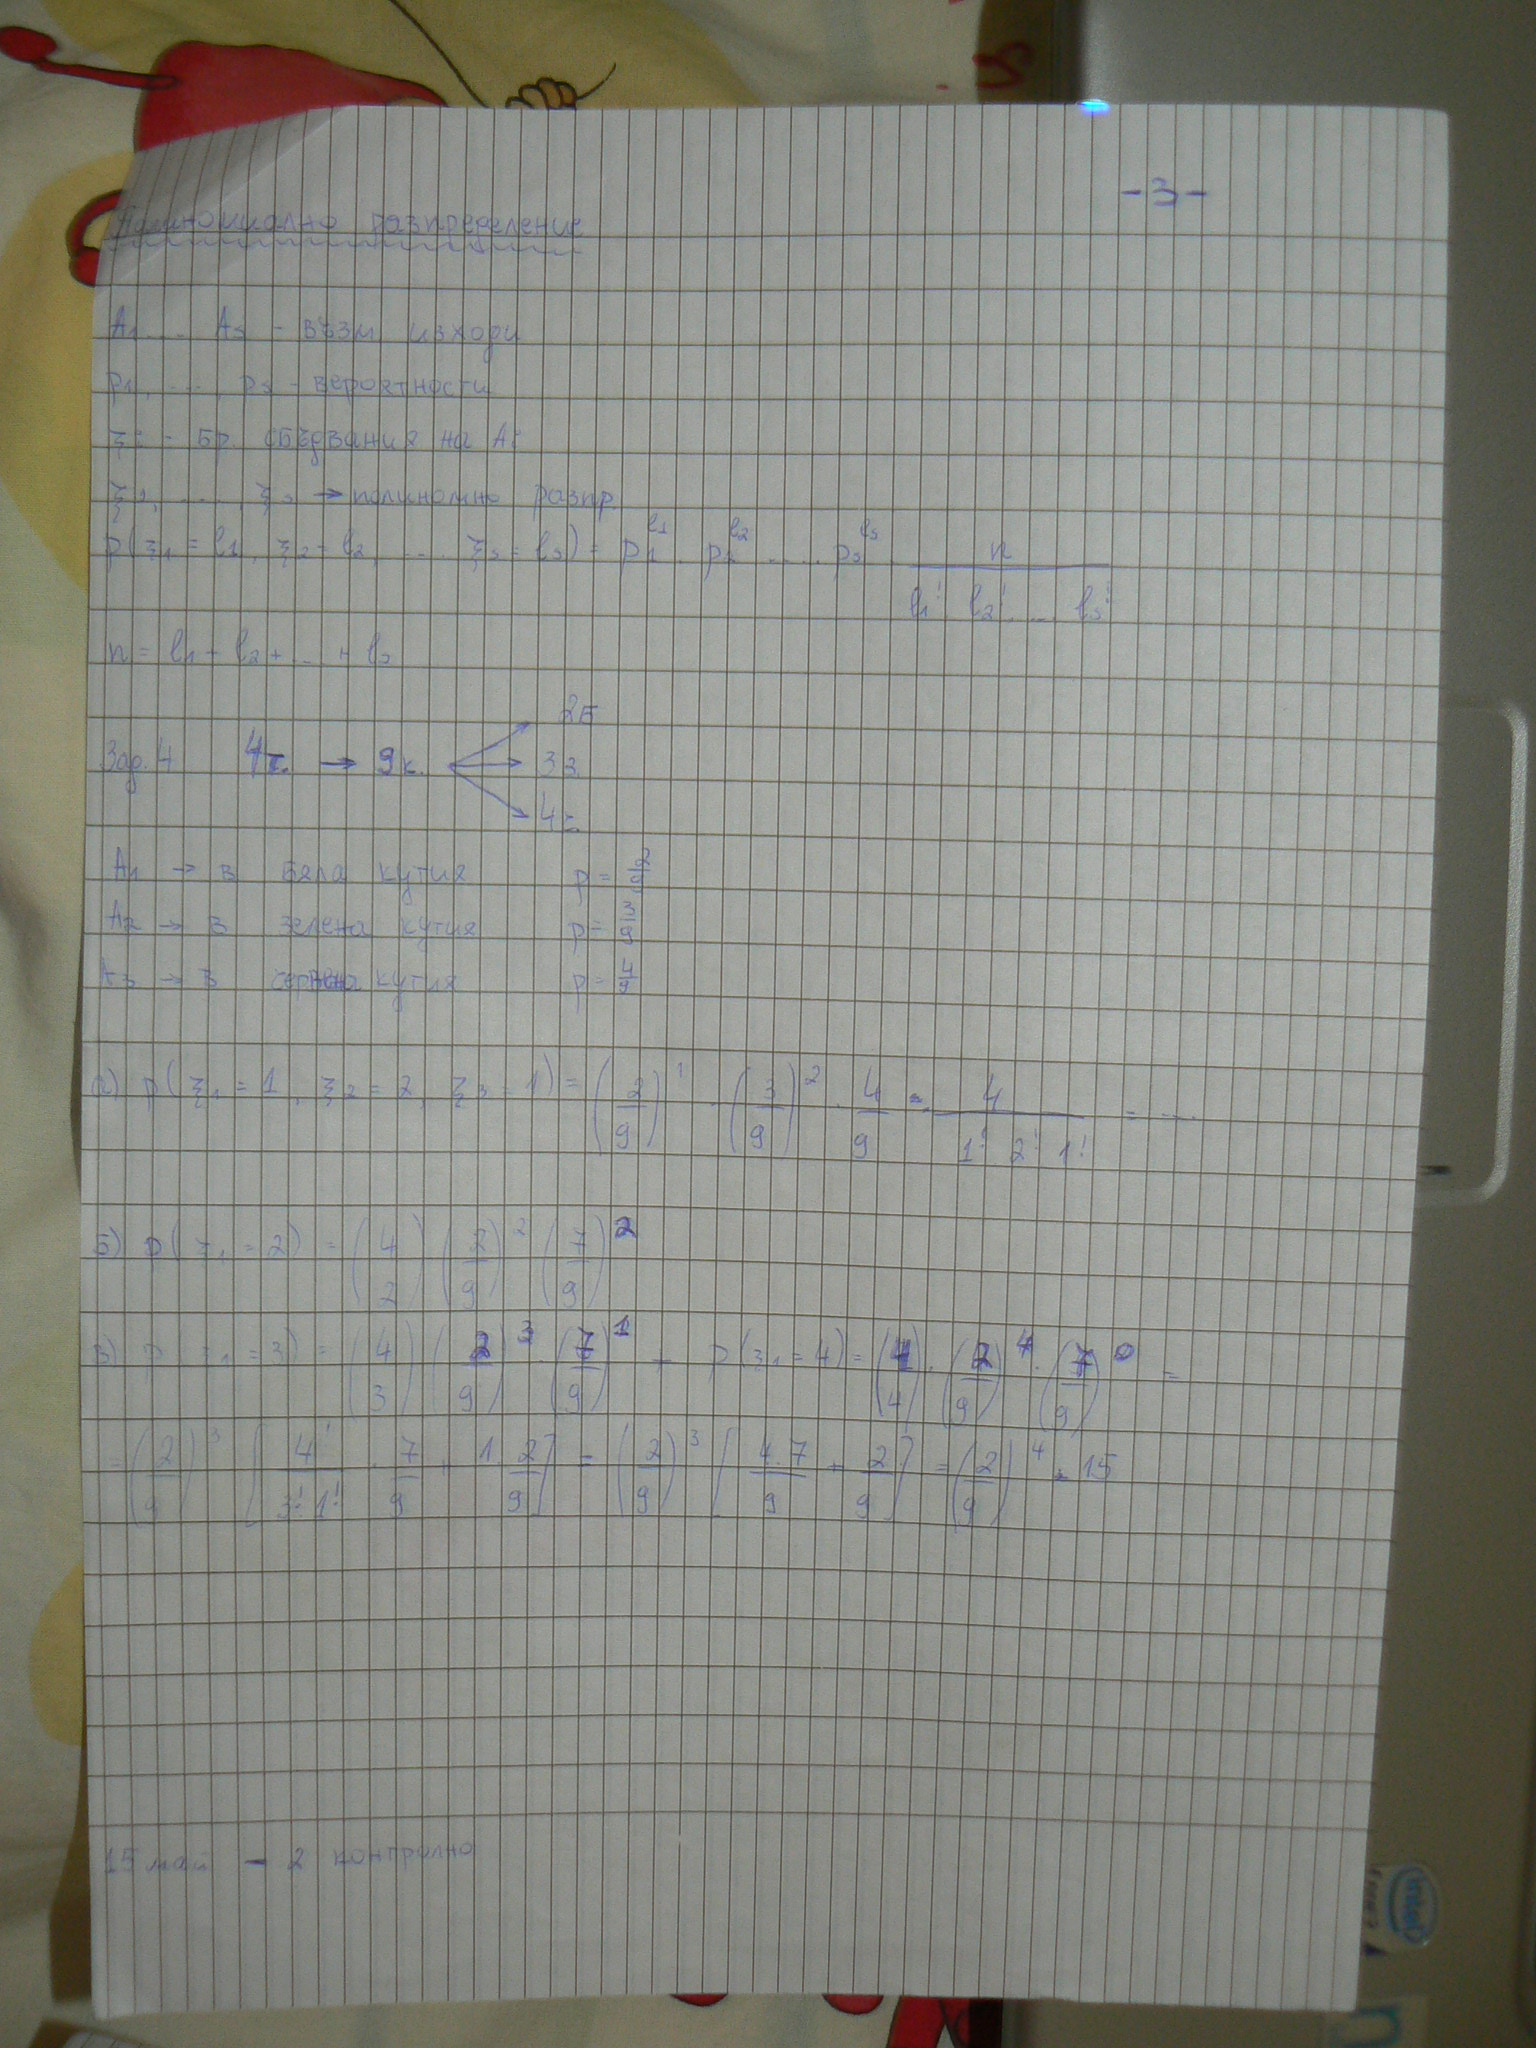 -3-
Полиномиално разпределение
A1 .... As - възм. изходи
p1, ...., ps - вероятности
ξi - бр. сбъдвания на Ai
ξ1, ...., ξs → полиномно разпр.
p(ξ1 = l1, ξ2 = l2, .... ξs = ls) = p1^l1 . p2^l2 ..... ps^ls . n / (l1! l2! ... ls!)
n = l1 + l2 + ... + ls
2б
Зад. 4 4т. → 9к. 3з
4ч
A1 → в бяла кутия p = 2/9
A2 → в зелена кутия p = 3/9
A3 → в червена кутия p = 4/9
а) p(ξ1 = 1, ξ2 = 2, ξ3 = 1) = (2/9)^1 . (3/9)^2 . 4/9 . 4 / (1! 2! 1!) = ....
б) p(ξ1 = 2) = (4 2) (2/9)^2 (7/9)^2
в) p(ξ1 = 3) = (4 3) (2/9)^3 . (7/9)^1 + p(ξ1 = 4) = (4 4) . (2/9)^4 . (7/9)^0 =
= (2/9)^3 [4! / (3! 1!) . 7/9 + 1 . 2/9] = (2/9)^3 [4.7/9 + 2/9] = (2/9)^4 . 15
15 май - 2 контролно
intel